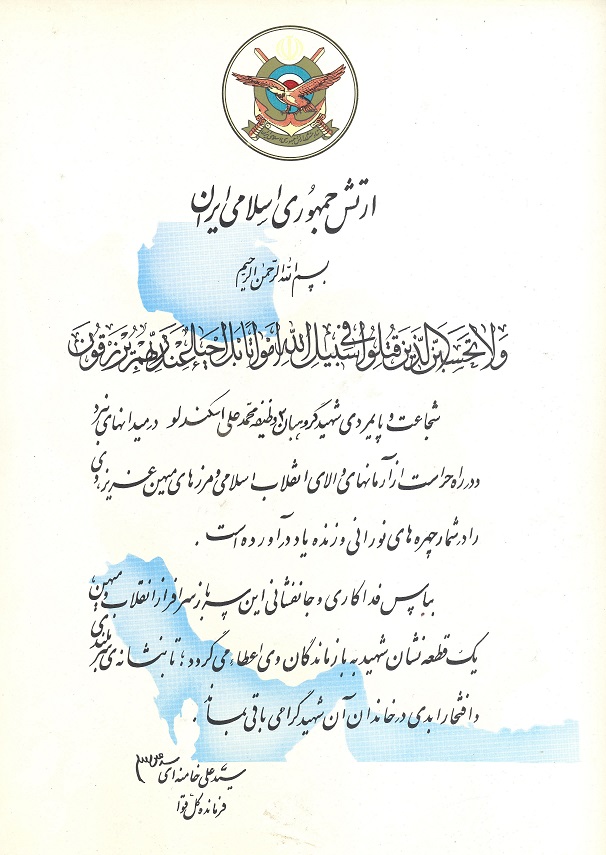 ارتش جمهوری اسلامی ایران
بسم الله الرحمن الرحیم
ولا تحسبن الذین قتلوا فی سبیل الله امواتا بل احیاء عند ربهم یرزقون
شجاعت و پایمردی شهید گروهبان ۲ وظیفه محمد علی اسکندلو در میدانهای نبرد
و در راه حراست از آرمانهای والای انقلاب اسلامی و مرزهای میهن عزیز، وی
را در شمار چهره های نورانی و زنده یاد در آورده است .
بپاس فداکاری و جانفشانی این سرباز سرافراز انقلاب و میهن،
یک قطعه نشان شهید به بازماندگان وی اعطاء می گردد ؛ تا بنشانه ی سربلندی
و افتخار ابدی در خاندان آن شهید گرامی باقی بماند .
سید علی خامنه ای
فرمانده کل قوا